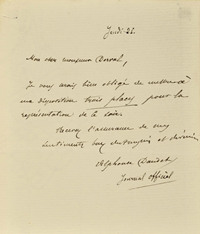 Jeudi 22
Mon cher monsieur Derval,
Je vous serais bien obligé de mettre à
ma disposition trois places pour la
représentation de ce soir.
Recevez l'assurance de mes
sentiments
Alphonse Daudet
Journal officiel